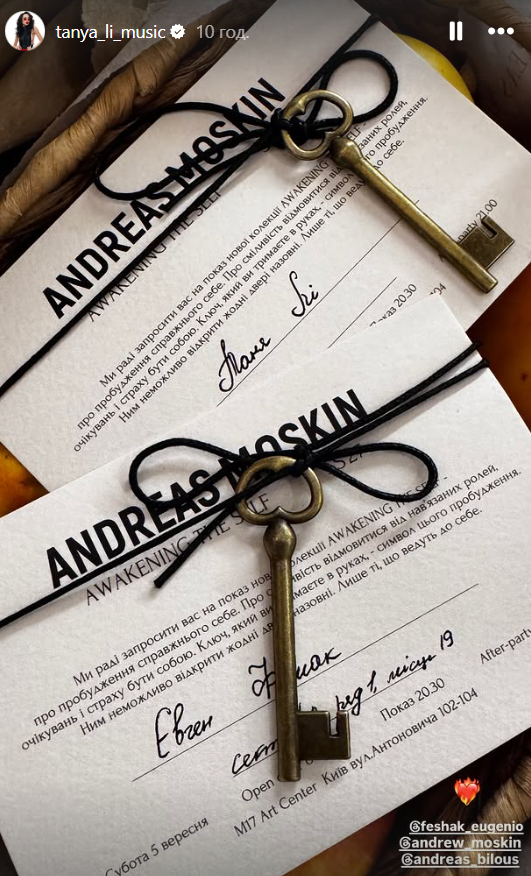 tanya_li_music 10 год.
ANDREAS MOSKIN
AWAKENING THE SELF
Ми раді запросити вас на показ нової колекції AWAKENING
про пробудження справжнього себе. Про сміливість відмовитися від
очікувань і страху бути собою. Ключ, який ви тримаєте в руках, - символ
Ним неможливо відкрити жодні двері назовні. Лише ті, що ведуть до себе.
Таня Лі
Показ 20.30
party 21.00
ANDREAS MOSKIN
AWAKENING THE SELF
Ми раді запросити вас на показ колекції AWAKENING THE SELF -
про пробудження справжнього себе. Про сміливість відмовитися від нав'язаних ролей,
очікувань і страху бути собою. Ключ, який ви тримаєте в руках, - символ цього пробудження.
Ним неможливо відкрити жодні двері назовні. Лише ті, що ведуть до себе.
Євген
ряд 1, місце 19
Open Показ 20.30 After-party
Субота 5 вересня M17 Art Center Київ вул.Антоновича 102-104
@feshak_eugenio
@andrew_moskin
@andreas_bilous